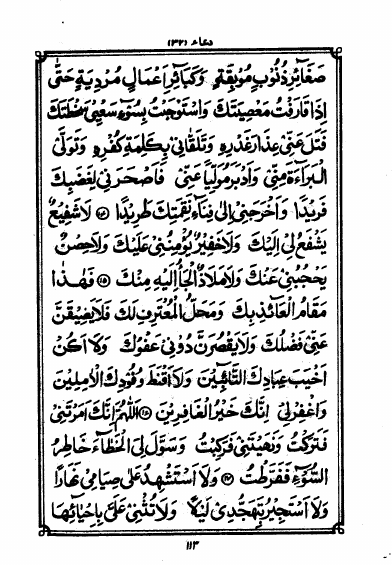 دعاء (٣٢)
صَغَآئِرِ ذُنُوبٍ مُوبِقَةٍ وَكَبَآئِرِ اَعْمَالٍ مُرْدِيَةٍ حَتّٰى
اِذَا قَارَفْتُ مَعْصِيَتَكَ وَاسْتَوْجَبْتُ بِسُوٓءِ سَعْيِىْ سَخْطَتَكَ
فَتَلَ عَنِّىْ عِذَارَ غَدْرِهٖ وَتَلَقَّانِىْ بِكَلِمَةِ كُفْرِهٖ وَتَوَلَّى
الْبَرَآءَةَ مِنِّىْ وَاَدْبَرَ مُوَلِّيًا عَنِّىْ فَاَصْحَرَنِىْ لِغَضَبِكَ
فَرِيْدًا وَاَخْرَجَنِىْ اِلٰى فِنَآءِ نَقِمَتِكَ طَرِيْدًا لَا شَفِيْعٌ
يَشْفَعُ لِىْ اِلَيْكَ وَلَا خَفِيْرٌ يُؤْمِنُنِىْ عَلَيْكَ وَلَا حِصْنٌ
يَحْجُبُنِىْ عَنْكَ وَلَا مَلَاذٌ اَلْجَأُ اِلَيْهِ مِنْكَ ﴿١٥﴾ فَهٰذَا
مَقَامُ الْعَآئِذِ بِكَ وَمَحَلُّ الْمُعْتَرِفِ لَكَ فَلَا يَضِيْقَنَّ
عَنِّىْ فَضْلُكَ وَلَا يَقْصُرَنَّ دُوْنِىْ عَفْوُكَ وَلَا اَكُنْ
اَخْيَبَ عِبَادِكَ التَّآئِبِيْنَ وَلَا اَقْنَطَ وُفُوْدِكَ الْاٰمِلِيْنَ
وَاغْفِرْلِىْ اِنَّكَ خَيْرُ الْغَافِرِيْنَ اَللّٰهُمَّ اِنَّكَ اَمَرْتَنِىْ
فَتَرَكْتُ وَنَهَيْتَنِىْ فَرَكِبْتُ وَسَوَّلَ لِىَ الْخَطَآءَ خَاطِرُ
السُّوٓءِ فَفَرَّطْتُ وَلَا اَسْتَشْهِدُ عَلٰى صِيَامِىْ نَهَارًا
وَلَا اَسْتَجِيْرُ بِتَهَجُّدِىْ لَيْلًا وَلَا تُثْنِىْ عَلَىَّ بِاِحْيَآئِهَا
١١٣